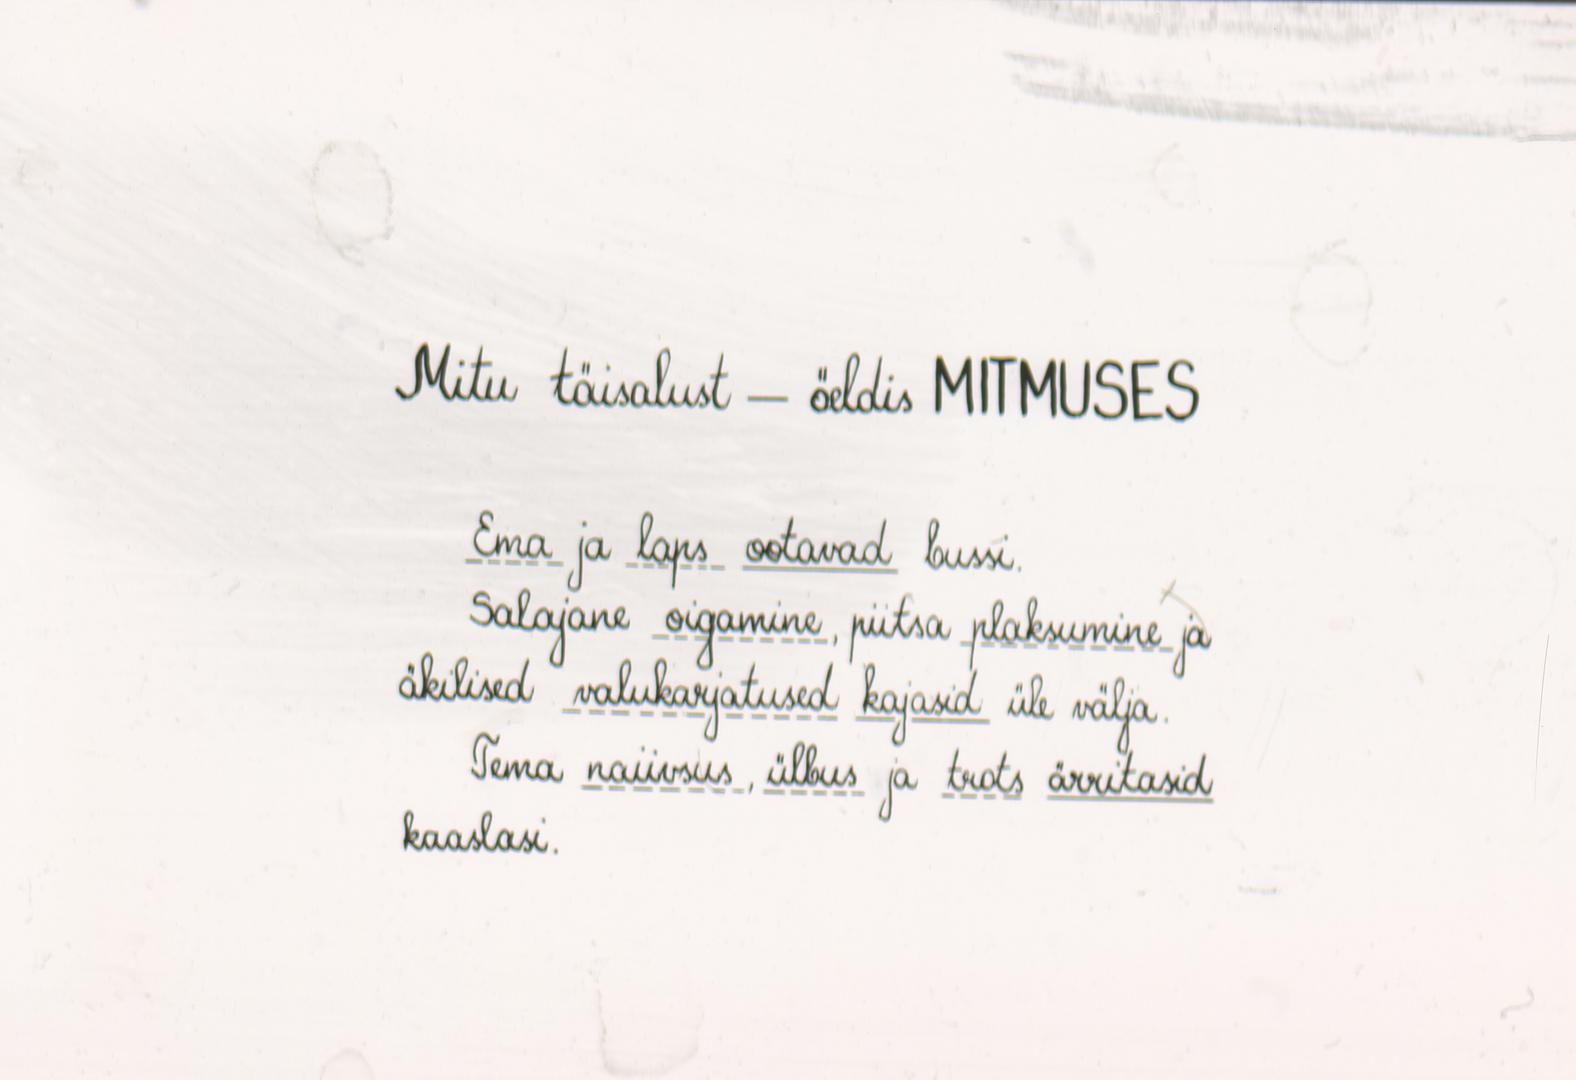 Mitu täisalust – öeldis MITMUSES
Ema ja laps ootavad bussi.
Salajane oigamine, piitsa plaksumine ja
äkilised valukarjatused kajasid üle välja.
Tema naiivsus, ülbus ja trots ärritasid
kaaslasi.